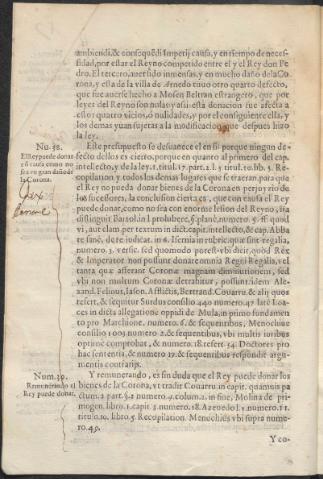 ambiendi, & consequēdi Imperij causa, y en tiempo de neces-
sidad, por estar el Reyno competido entre el y el Rey don Pe-
dro. El tercero, auer sido inmensas, y en mucho daño de la Co-
rona, y esta de la villa de Arnedo tuuo otro quarto defecto,
que fue auerse hecho a Mosen Beltran estrangero, que por
leyes del Reyno son nulas y assi esta donacion fue afecta a
essos quatro vicios, ò nulidades, y por el consiguiente ella, y
los demas yuan sujetas a la modificacion que despues hizo
la ley.
Nu. 38.
El Rey puede donar
cō causa como no
sea en gran daño de
la Corona.
Este presupuesto se desuanece el en si: porque ningun de-
fecto dellos es cierto, porque en quanto al primero del cap.
intellecto, y de la ley. titul. 17. part. 2. l. y titul. 10. lib. 5. Re-
copilacion y todos los demas lugares que se traeran para que
el Rey no pueda donar bienes de la Corona en perjuyzio de
los sucessores, la conclusion cierta es, que con causa el Rey
puede donar, como no sea con enorme lesion del Reyno, sic
distinguit Bartol. in l. prohibere, §. planè, numer.
vi, aut clam, per textum in dict. capit. intellecto, & cap. Abba
te sanè, de re iudicat. in 6. Isernia in rubric. quæ sint regalia,
numero 5. verse. sed quomodo poterit vbi dicit, quod Rex
& Imperator non possunt donare omnia Regni Regalia, vel
tanta quæ afferant Coronæ magnam diminutionem, sed
vbi non multum Coronæ detrahitur, possunt: idem Ale-
xand. Felinus, Iason, Afflictis, Bertrand. Couarru. & alij quos
refert, & sequitur Surdus consilio 440. numero 42. late Loa-
ces in dicta allegatione oppidi de Mula, in primo fundamen-
to pro Marchione. numero 6. & sequentibus, Menochius
consilio 1003. numero 2. & sequentibus, vbi multis iuribus
optimè comprobat, & numero 18. refert 54. Doctores pro
hac sententia, & numero 22. & sequentibus respondit argu-
mentis contrarijs.
Num. 39.
Remunerando el
Rey puede donar.
Y remunerando, es sin duda que el Rey puede donar los
bienes de la Corona, vt tradit Couarru. in capit. quamuis pa-
ctum. 2. part. §. 2. numero 4. colum. 2. in fine, Molina de pri-
mogen. libro 1. capit. 3. numero. 18. Azeuedo l. 3. numero. 12.
titulo. 10. libro 5. Recopilation. Menochius vbi supra nume-
ro 49.
Y co-